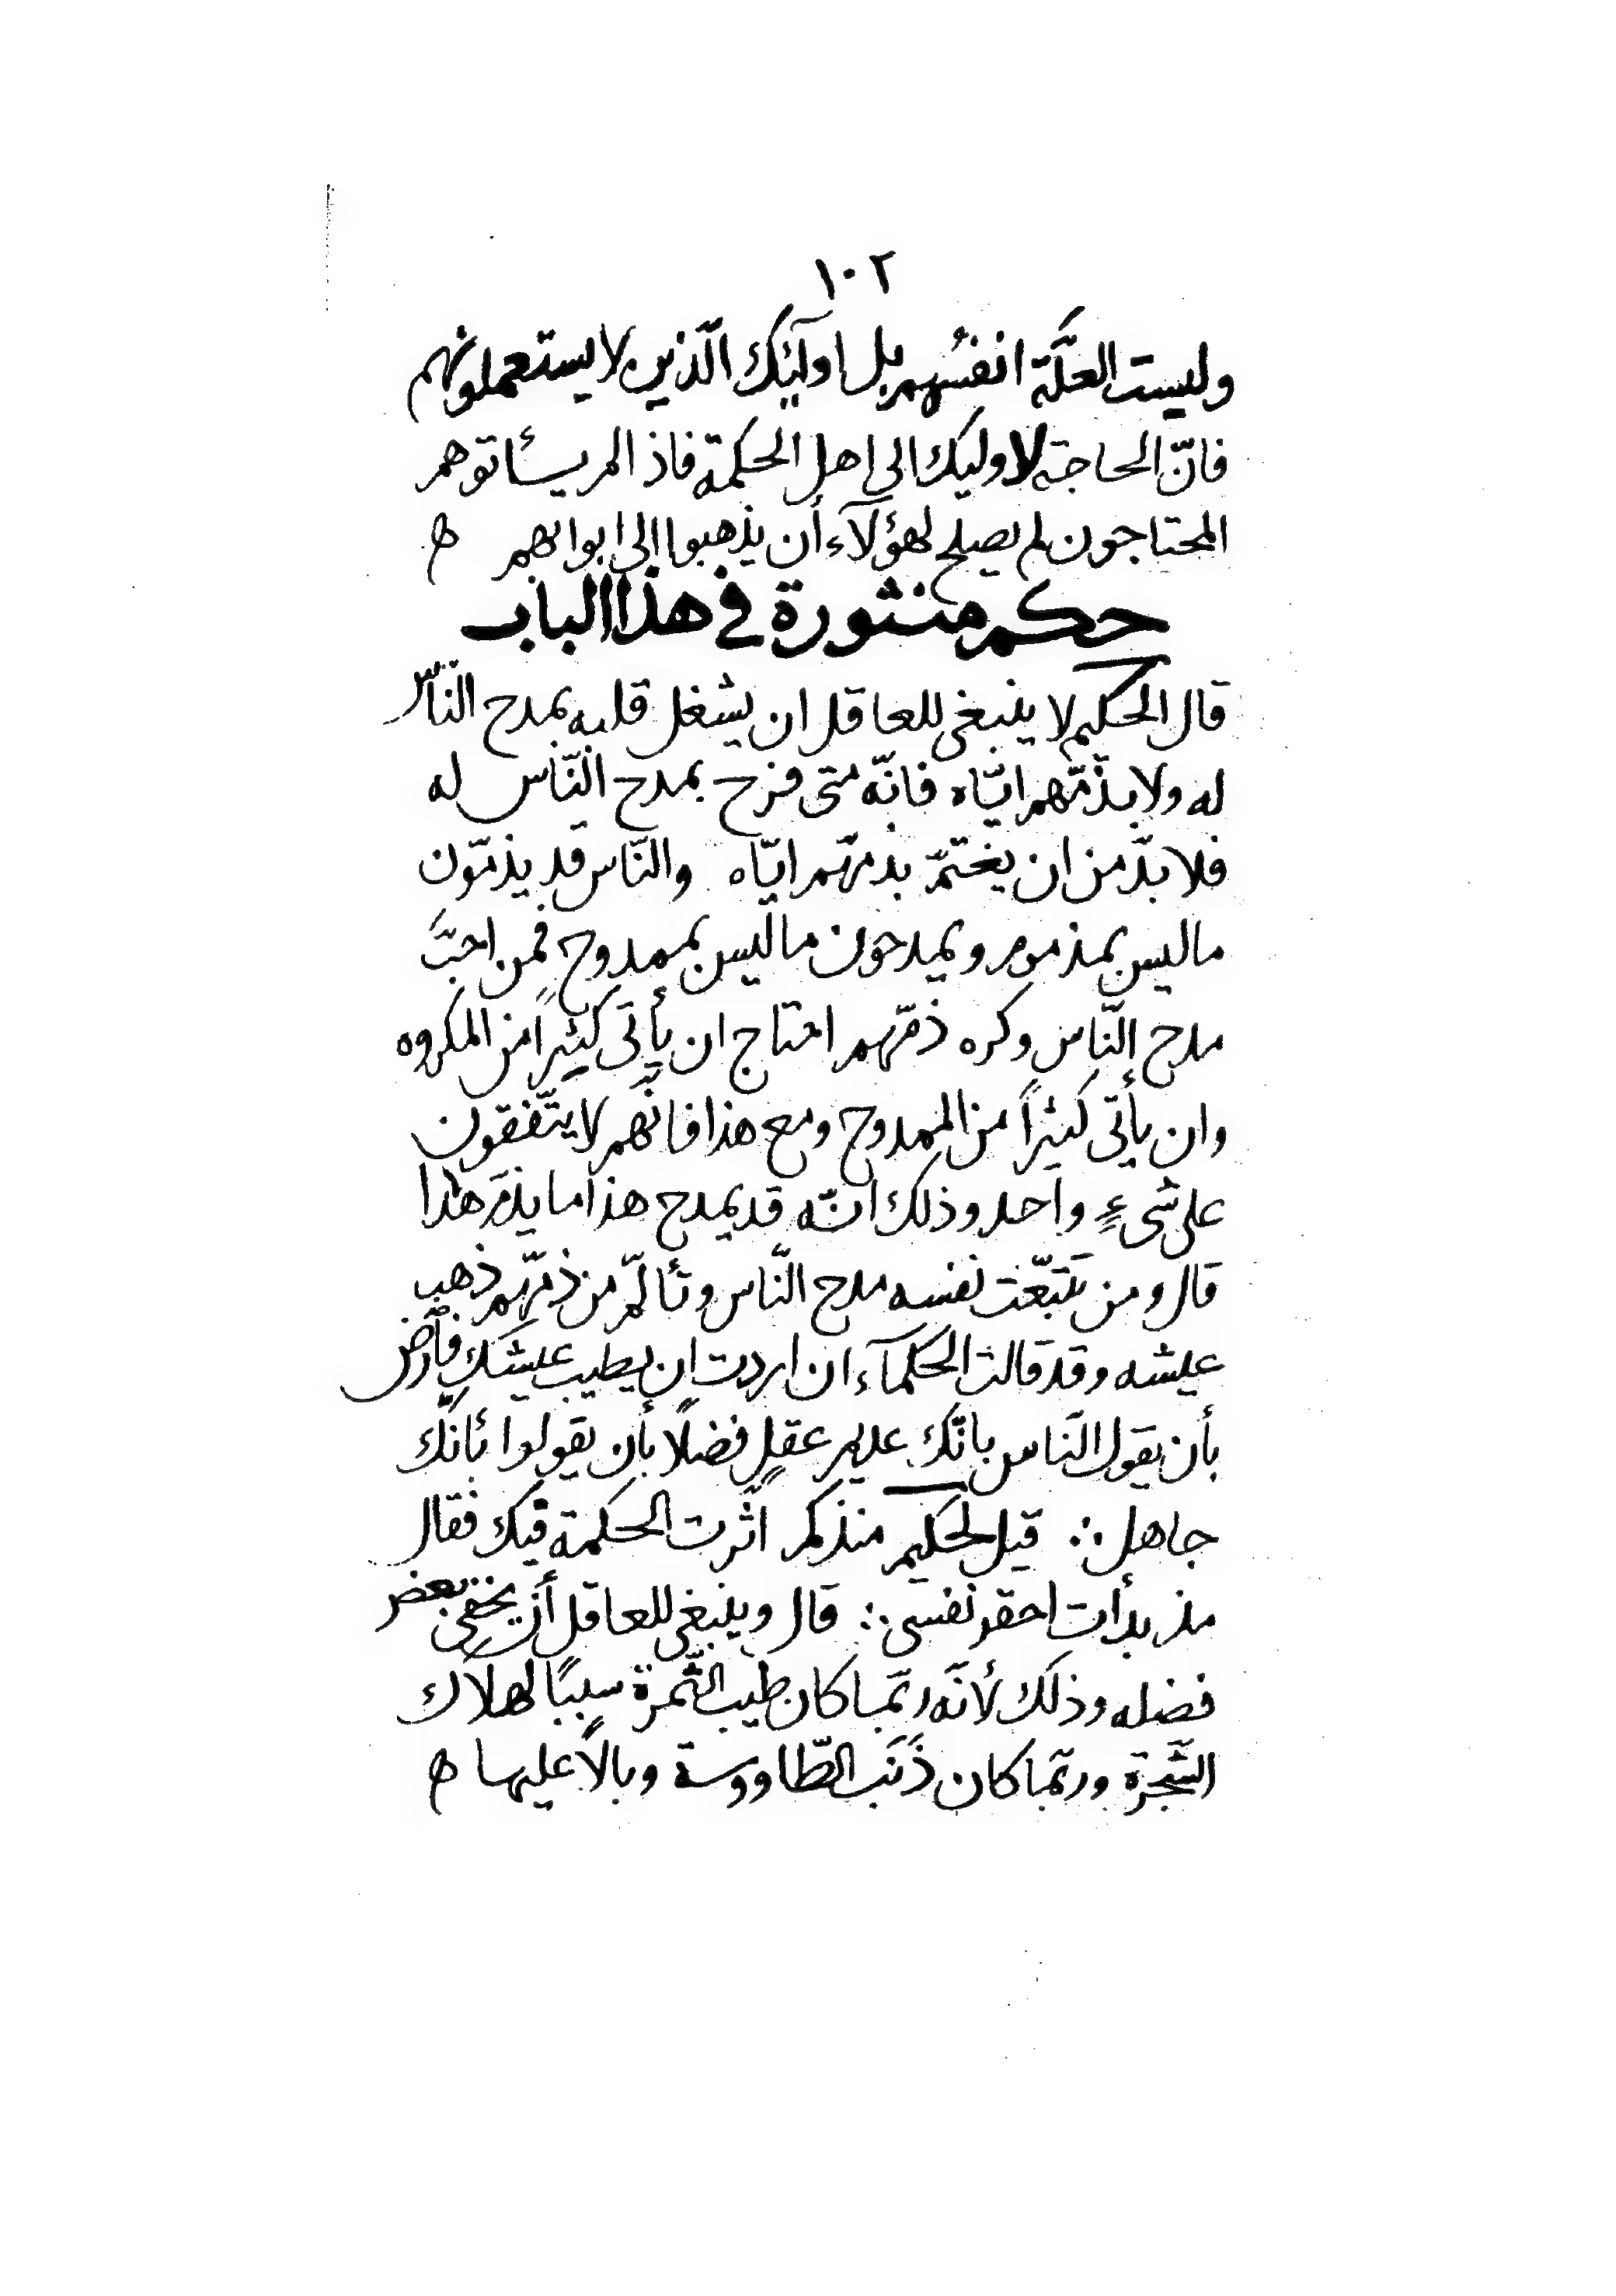 ١٠٢
وليست العلّة انفسُهم بل اوليٓك الّذين لا يستعملونهم
فانّ الحاجة لاوليك الى اهل الحكمة فاذا لم يسئاتوهم
المحتاجون لم يصلح لهؤلآء أن يذهبوا الى ابوابهم ه
حكم منثورة في هذا الباب
قال الحكيم لا ينبغى للعاقل ان يشغل قلبه بمدح النّاس
له ولا بذمّهم ايّاه فانّه متى فرح بمدح النّاس له
فلا بدّ من ان يغتمّ بذمّهم ايّاه والنّاس قد يذمّون
ما ليس بمذموم ويمدحون ما ليس بممدوح فمن احبّ
مدح النّاس وكره ذمّهم احتاج ان يأتى كثيرًا من المكروه
وان يأتى كثيرًا من الممدوح ومع هذا فانّهم لا يتّفقون
على شىءٍ واحد وذلك انّه قد يمدح هذا ما يذمّ هذا
قال ومن تتبّعت نفسه مدح النّاس وتألّم من ذمّهم ذهب
عيشه وقد قالت الحكمآء ان اردت ان يطيب عيشك فأرض
بأن يقول النّاس بانّك عديم عقلٍ فضلًا بأن يقولوا بانّك
جاهل ∴ قيل لحكيم منذ كم اثّرت الحكمة فيك فقال
مذ بدأت احقر نفسى ∴ قال وينبغى للعاقل أن يخفى بعض
فضله وذلك لأنّه ربّما كان طيب الثّمرة سببًا لهلاك
الشّجرة وربّما كان ذَنَب الطّاووسة وبالًا عليها ه